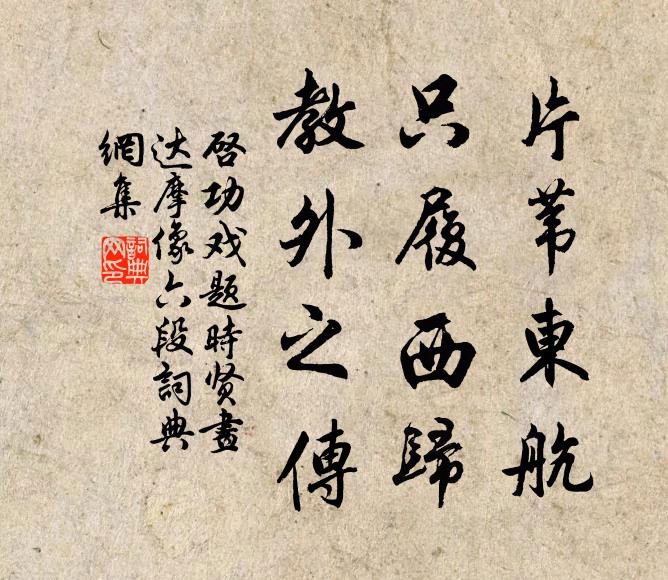 片苇東航
只履西歸
教外之傳
启功戏题時贤畫
达摩像六段詞典
網集
詞典網印